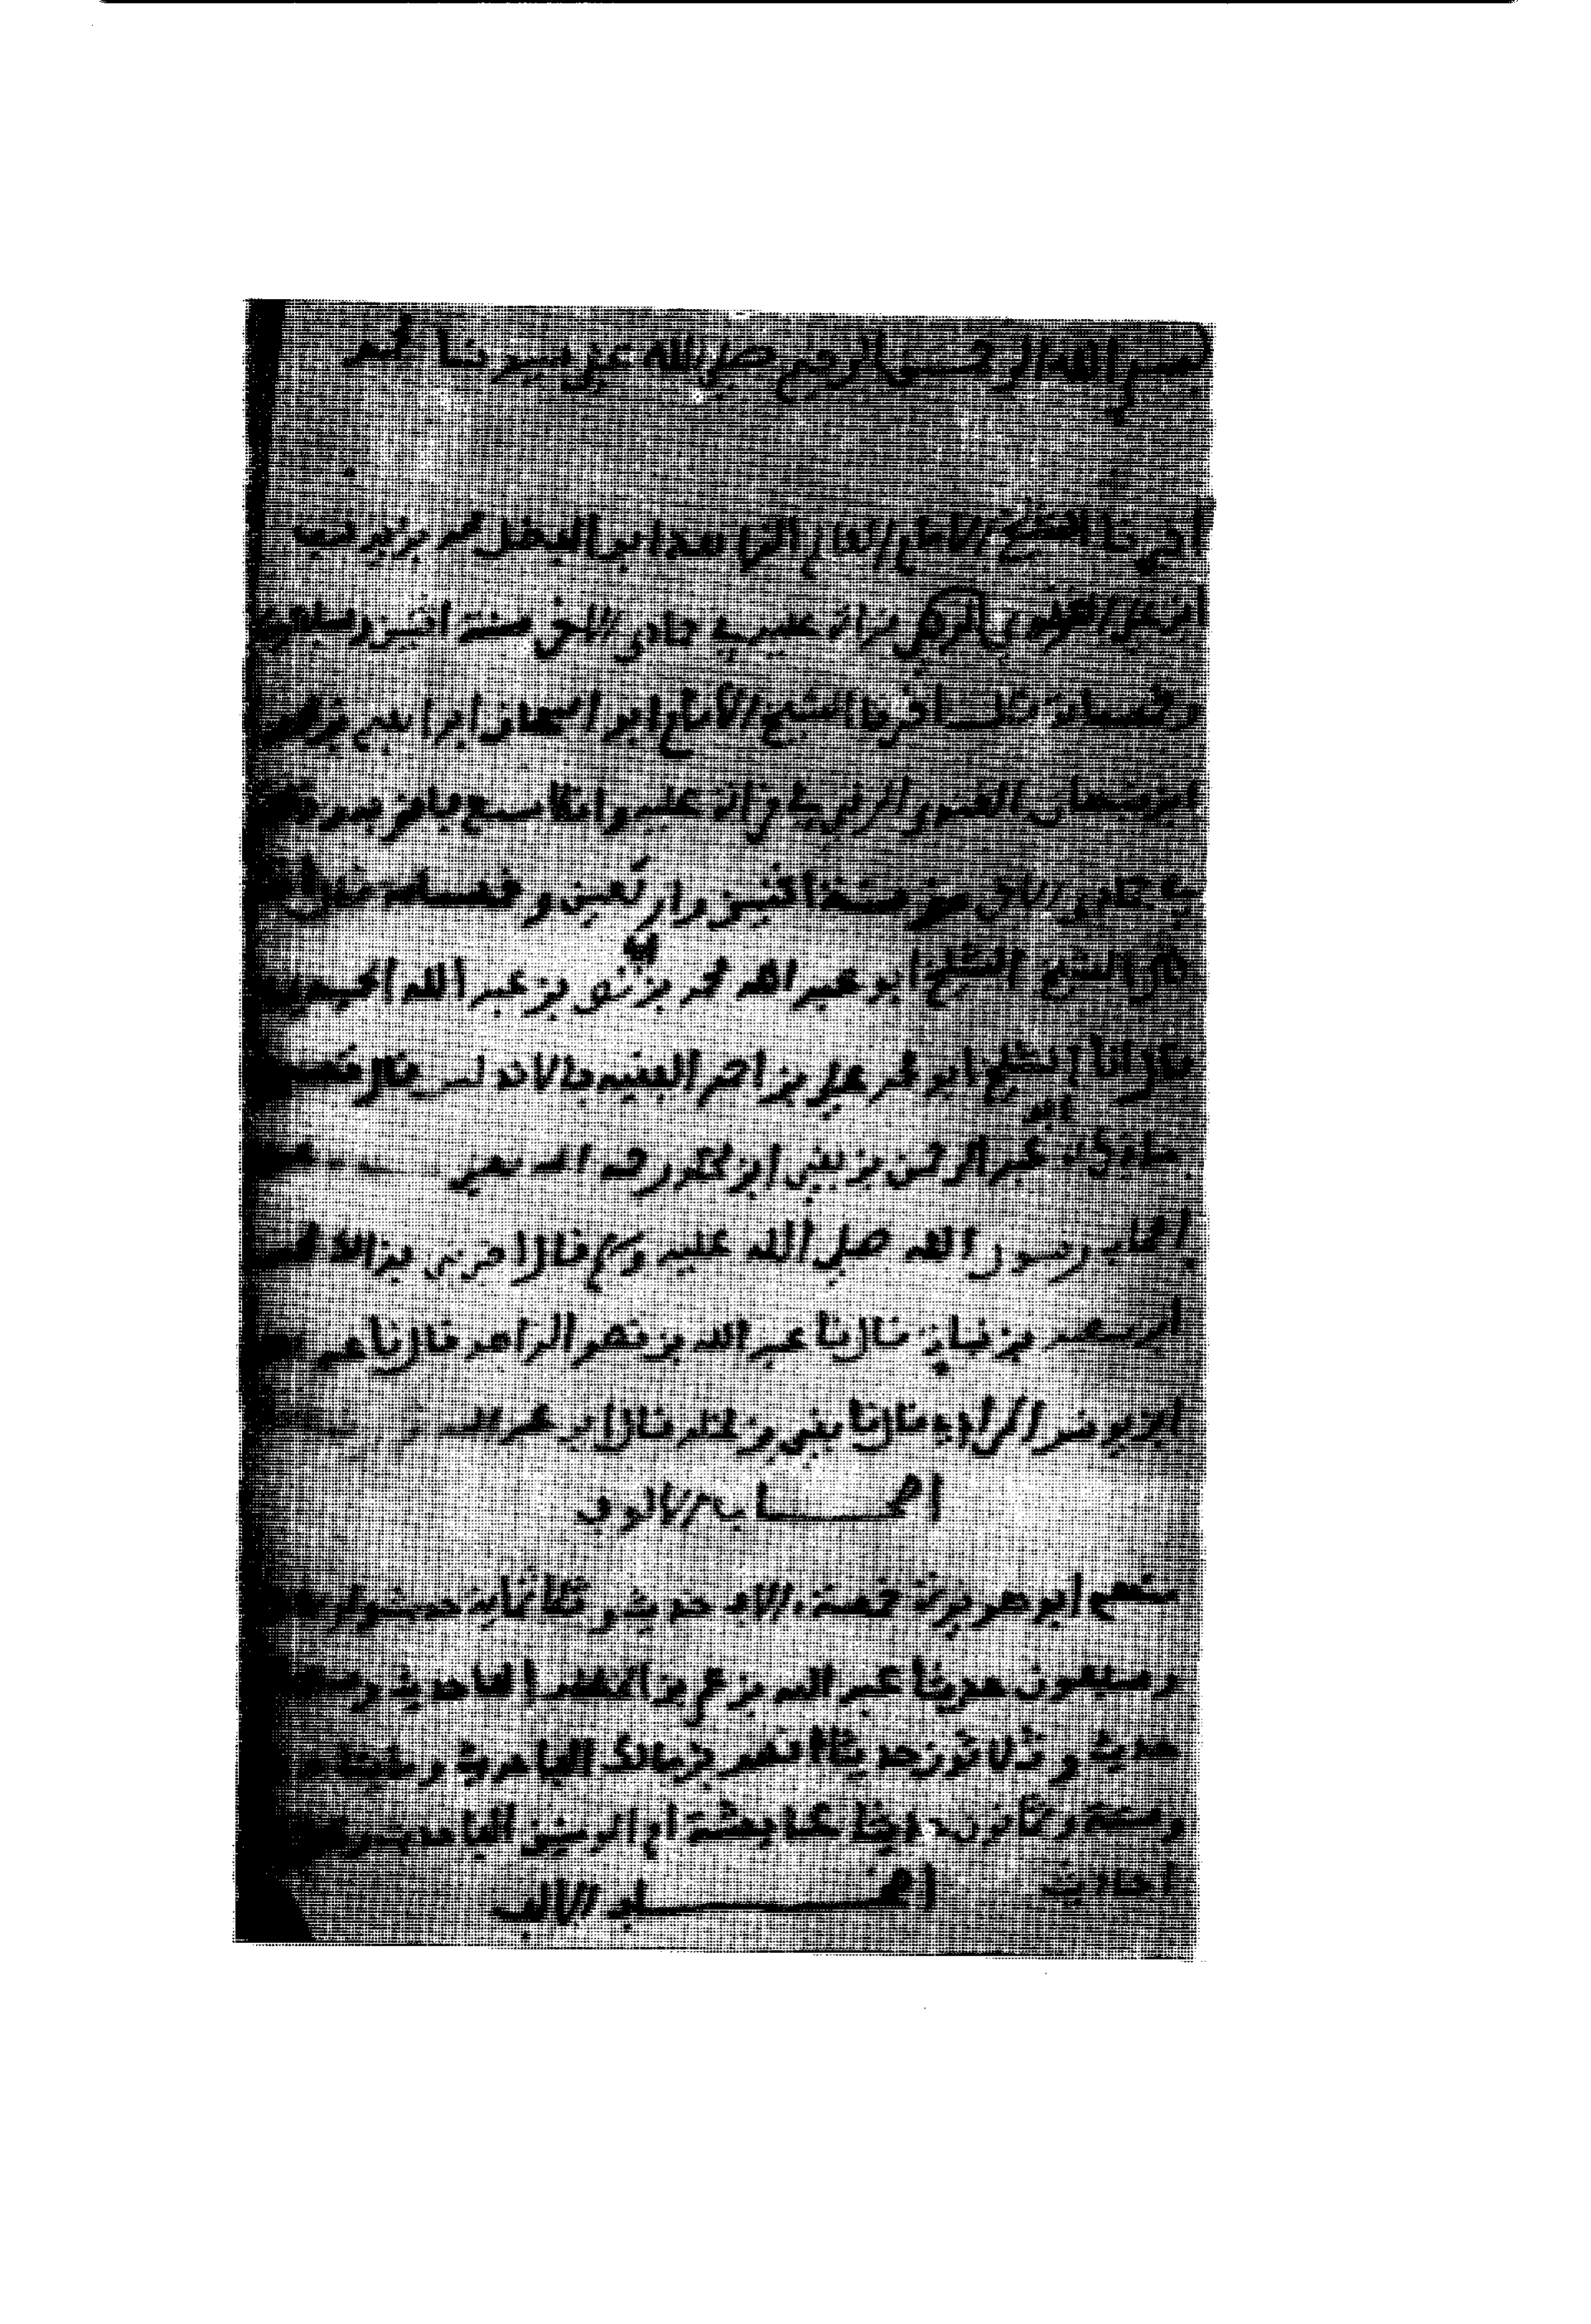 بسم الله الرحمن الرحيم صلى الله على سيدنا محمد
اخبرنا الشيخ الامام العالم الزاهد ابو الفضل محمد بن يوسف
ابن علي الغزنوي قراة عليه في جمادى الاخرى سنة اثنين وسبعين
وخمسماية قلت اخبرنا الشيخ الامام ابو اسحاق ابراهيم بن محمد
ابن نبهان الغنوي الرقي قراة عليه وانا اسمع فاقر به وذلك
في جمادى الاخرى من سنة اثنين واربعين وخمسماية قال
قال الشيخ ابو عبد الله محمد بن ابي نصر بن عبد الله الحميدي
قال انا الشيخ ابو محمد علي بن احمد الفقيه بالاندلس قال
ما ذكره ابو عبد الرحمن بقي ابن مخلد رحمه الله
اصحاب رسول الله صلى الله عليه وسلم قال اخبرني بذلك محمد
ابن سعيد بن نبات قال نا عبد الله بن نصر الزاهد قال نا عبد الله
ابن يونس المرادي قال نا بقي بن مخلد قال ابو محمد
اصحاب الالوف
منهم ابو هريرة خمسة الاف حديث وثلاثماية حديث واربعة
وسبعون حديثا عبد الله بن عمر بن الخطاب الفا حديث وستماية
حديث وثلاثون حديثا انس بن مالك الفا حديث ومايتان
وستة وثمانون حديثا عايشة ام المومنين الفا حديث
احاديث
اصحاب الالف